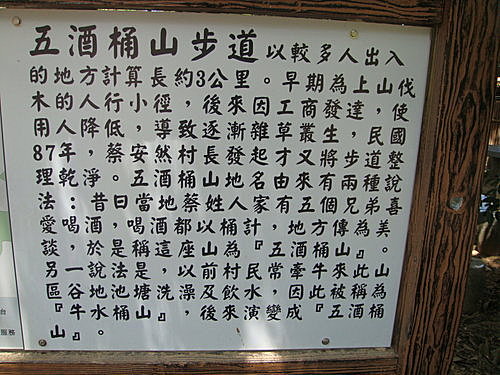 五酒桶山步道以較多人出入
的地方計算長約3公里。早期為上山伐
木的人行小徑，後來因工商發達，使
用人降低，導致逐漸雜草叢生，民國
87年，蔡安然村長發起才又將步道整
理乾淨。五酒桶山地名由來有兩種說
法：昔日當地蔡姓人家有五個兄弟喜
愛喝酒，喝酒都以桶計，地方傳為美
談，於是稱這座山為『五酒桶山』。
另一說法是，以前村民常牽牛來此山
區谷地池塘洗澡及飲水，因此被稱為
『牛水桶山』，後來演變成『五酒桶
山』。
台
服務